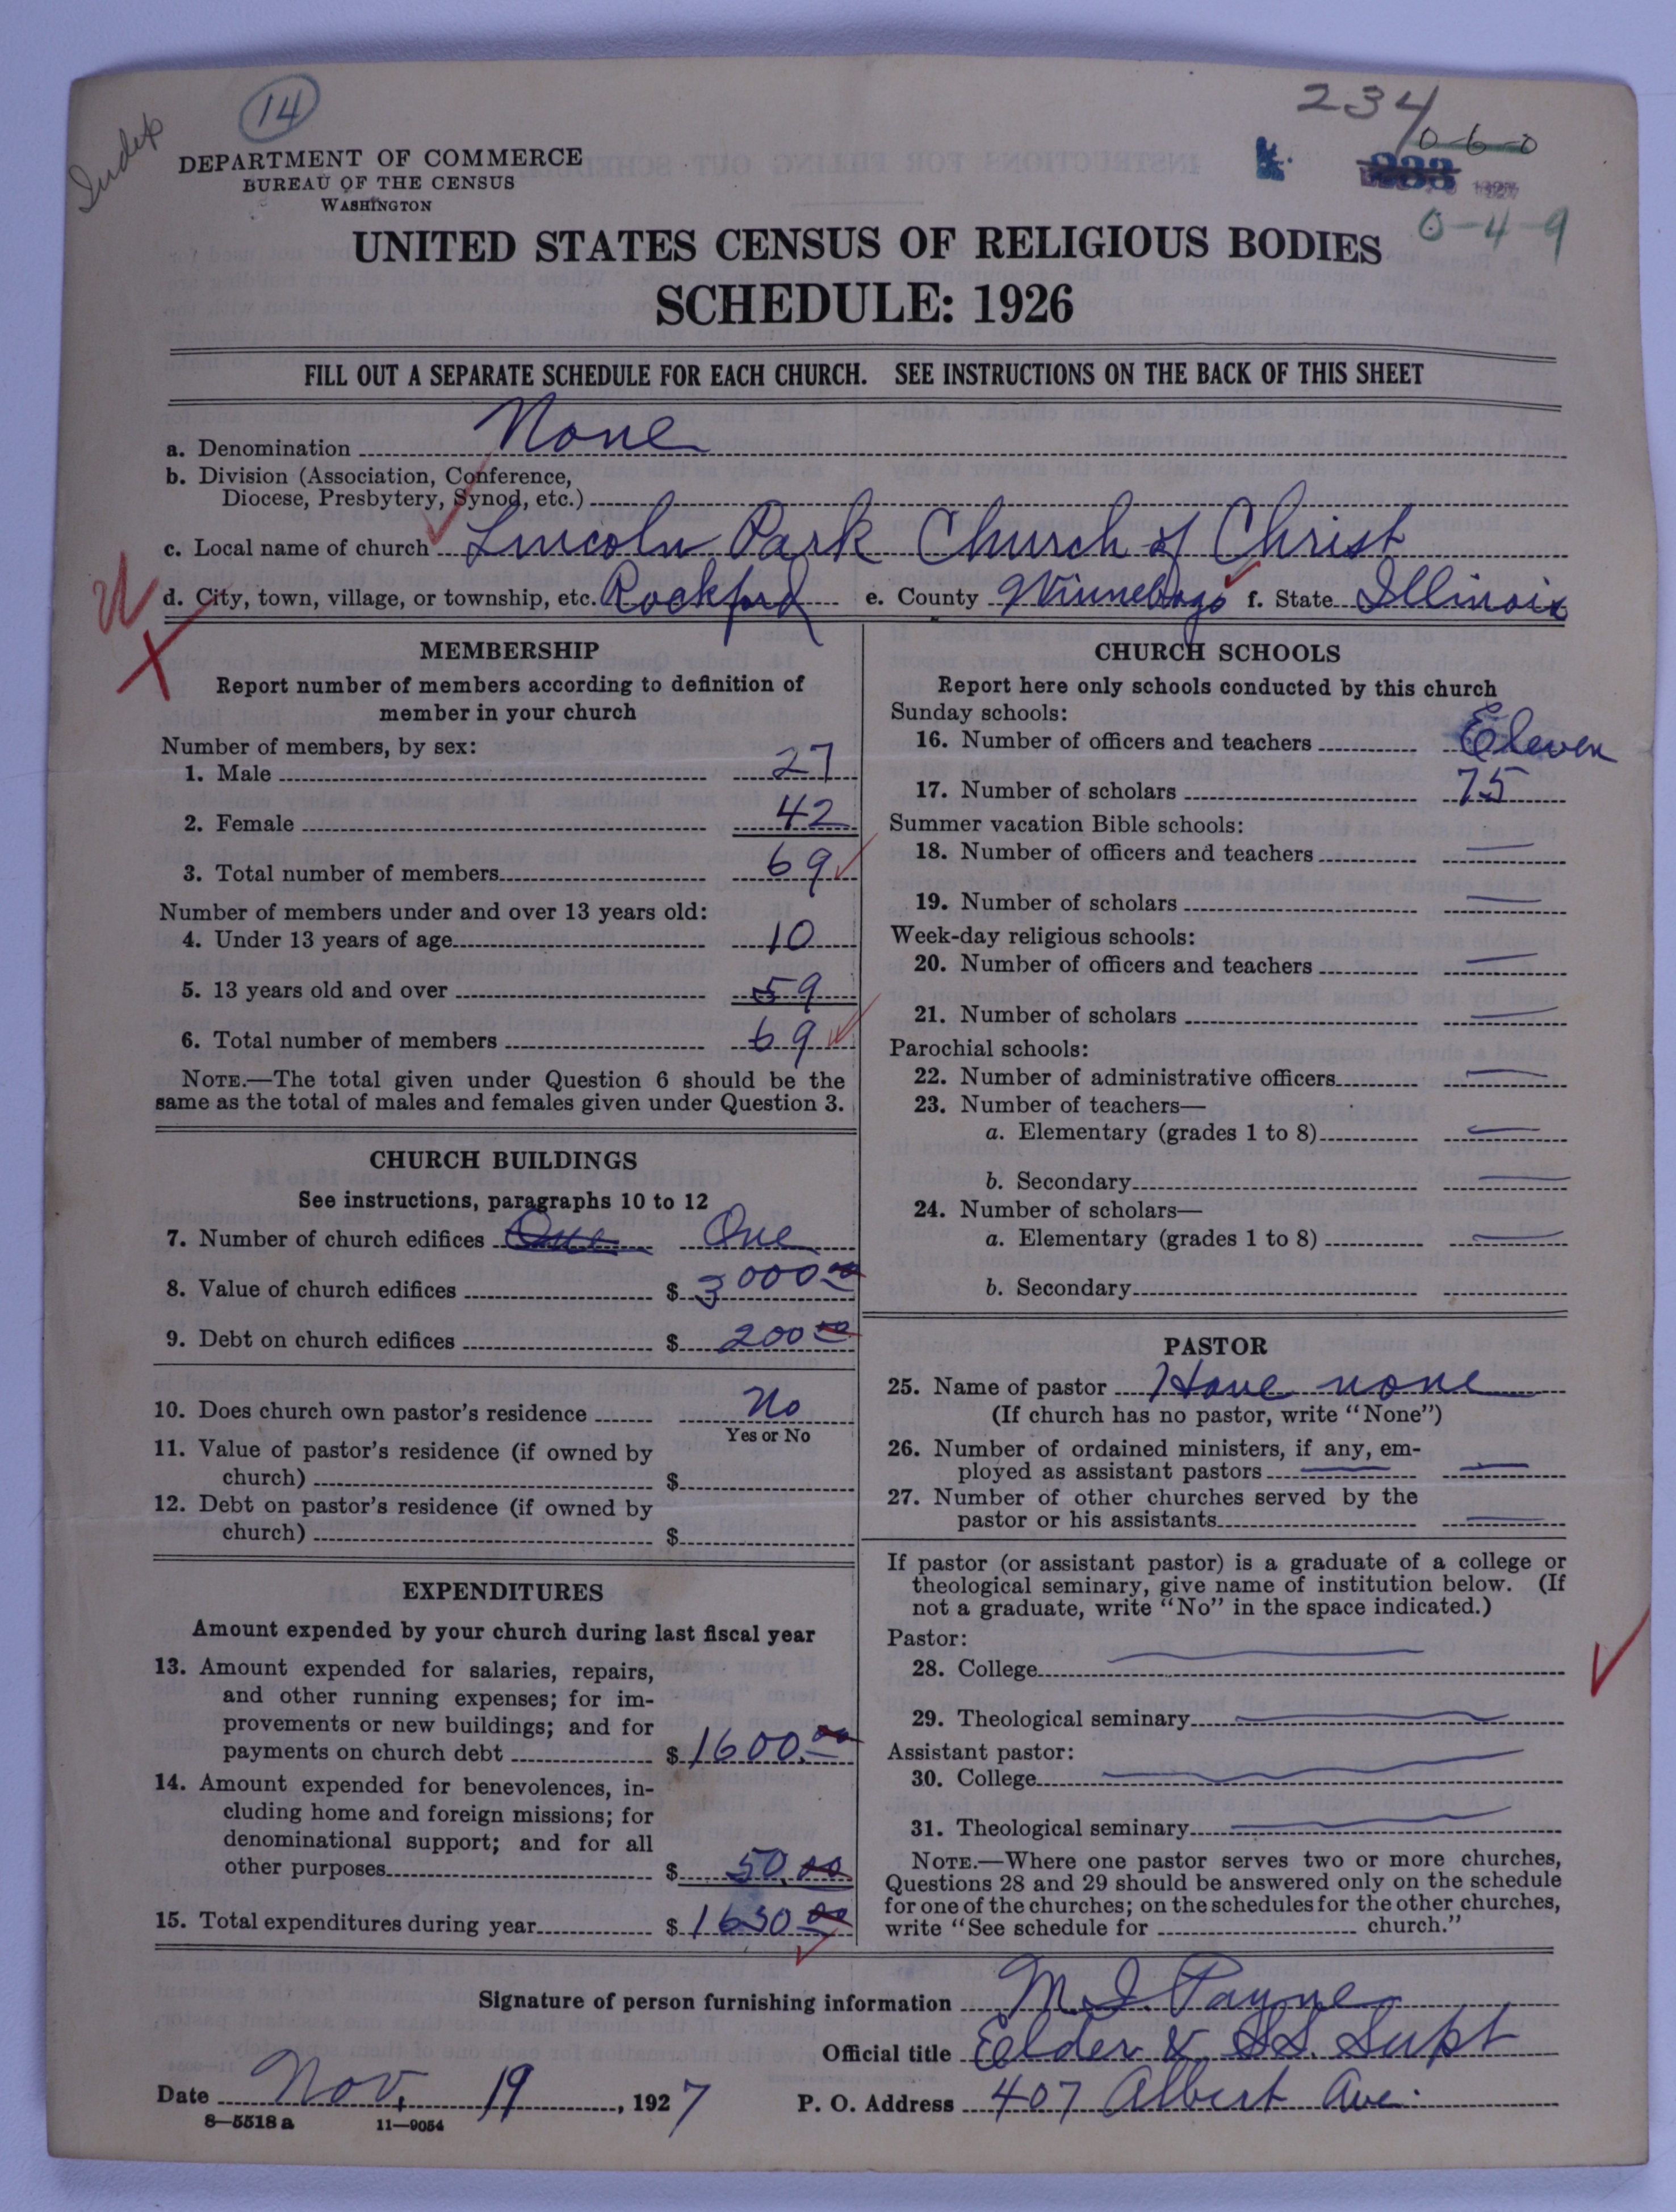 14
Index
234
0-6-0
0-4-9
DEPARTMENT OF COMMERCE
BUREAU OF THE CENSUS
WASHINGTON
UNITED STATES CENSUS OF RELIGIOUS BODIES
SCHEDULE: 1926
FILL OUT A SEPARATE SCHEDULE FOR EACH CHURCH. SEE INSTRUCTIONS ON THE BACK OF THIS SHEET
a. Denomination None
b. Division (Association, Conference,
Diocese, Presbytery, Synod, etc.)
c. Local name of church Lincoln Park Church of Christ
d. City, town, village, or township, etc. Rockford e. County Winnebago f. State Illinois
MEMBERSHIP
Report number of members according to definition of
member in your church
Number of members, by sex:
1. Male 27
2. Female 42
3. Total number of members 69
Number of members under and over 13 years old:
4. Under 13 years of age 10
5. 13 years old and over 59
6. Total number of members 69
NOTE.—The total given under Question 6 should be the
same as the total of males and females given under Question 3.
CHURCH BUILDINGS
See instructions, paragraphs 10 to 12
7. Number of church edifices One One
8. Value of church edifices $ 3000.00
9. Debt on church edifices $ 200.00
10. Does church own pastor's residence No
Yes or No
11. Value of pastor's residence (if owned by
church) $
12. Debt on pastor's residence (if owned by
church) $
EXPENDITURES
Amount expended by your church during last fiscal year
13. Amount expended for salaries, repairs,
and other running expenses; for im-
provements or new buildings; and for
payments on church debt $ 1600.00
14. Amount expended for benevolences, in-
cluding home and foreign missions; for
denominational support; and for all
other purposes $ 50.00
15. Total expenditures during year $ 1650.00
CHURCH SCHOOLS
Report here only schools conducted by this church
Sunday schools:
16. Number of officers and teachers Eleven
17. Number of scholars 75
Summer vacation Bible schools:
18. Number of officers and teachers —
19. Number of scholars —
Week-day religious schools:
20. Number of officers and teachers —
21. Number of scholars —
Parochial schools:
22. Number of administrative officers —
23. Number of teachers—
a. Elementary (grades 1 to 8) —
b. Secondary —
24. Number of scholars—
a. Elementary (grades 1 to 8) —
b. Secondary
PASTOR
25. Name of pastor Have none
(If church has no pastor, write "None")
26. Number of ordained ministers, if any, em-
ployed as assistant pastors —
27. Number of other churches served by the
pastor or his assistants —
If pastor (or assistant pastor) is a graduate of a college or
theological seminary, give name of institution below. (If
not a graduate, write "No" in the space indicated.)
Pastor:
28. College —
29. Theological seminary —
Assistant pastor:
30. College —
31. Theological seminary —
NOTE.—Where one pastor serves two or more churches,
Questions 28 and 29 should be answered only on the schedule
for one of the churches; on the schedules for the other churches,
write "See schedule for church."
Signature of person furnishing information M. I. Payne
Official title Eelder & S.S. Supt
Date Nov. 19, 1927 P. O. Address 407 Albert Ave.
8—5518 a 11—9054